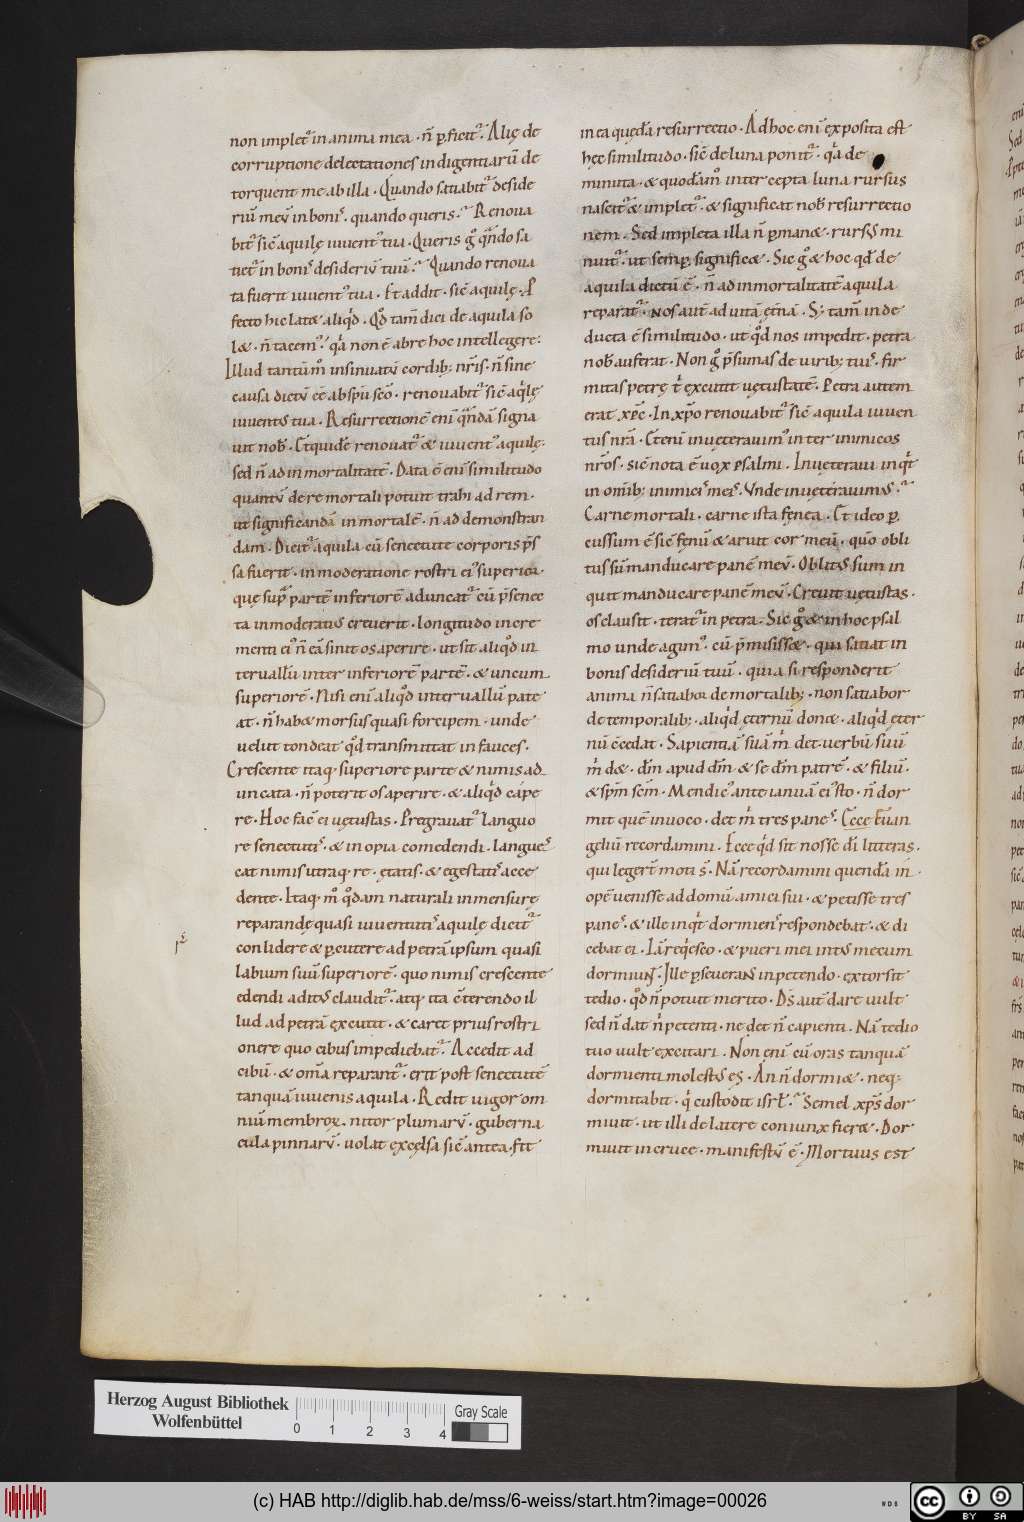 non implet᷒ in anima mea · n̄ ꝑficit᷒ · Alię de
corruptione delectationes indigentiarū de
torquent me ab illa · Quando satiabit᷒ deside
riū meū in boniˢ · quando queris · Renoua
bit᷒ sic̄ aquilę iuuent᷒ tua · Queris gͦ qn̄do sa
tiet᷒ in boniˢ desideriū tuū · Quando renoua
ta fuerit iuuent᷒ tua · Et addit · sic̄ aquilę · P
fecto hic latꝫ aliqͥd · Qͦd tam̄ dici de aquila so
l& · n̄ tacem᷒ · qͥa non ē abre hoc intellegere·
Illud tantūmͦ insinuatū cordibꝫ nr̄is · n̄ sine
causa dictū ēē abspū scō · renouabit᷒ sic̄ aqͥlę
iuuent᷒ tua · Resurrectionē eni qn̄dā signa
uit nob̄ · Et quidē renouat᷒ & iuuent᷒ aquilę·
sed n̄ ad inmortalitatē · Data ē eni similitudo
quantū de re mortali potuit trahi ad rem ·
ut significandā inmortalē · n̄ ad demonstran
dam · Dicit᷒ aquila cū senectute corporis p̄s
sa fuerit · inmoderatione rostri ei᷒ superior·
que sup̄ partē inferiorē aduncat᷒ cū p̄senec
ta inmoderati᷒ creuerit · longitudo incre
menti ei᷒ n̄ eā sinit os aperire · ut sit aliqͦd in
teruallū inter inferiorē partē · & uncum
superiorē · Nisi eni aliqͦd interuallū pate
at · n̄ hab& morsus quasi forcipem · unde
uelut tondeat qͦd transmittat in fauces ·
Crescente itaqꝫ superiore parte & nimis ad
uncata · n̄ poterit os aperire · & aliqͥd cape
re · Hoc fac̄ ei uętustas · Pregrauat᷒ languo
re senectutiˢ · & inopia comedendi · languesˢ
cat nimis utraqꝫ re · ętatis · & egestatiˢ acce
dente · Itaqꝫ mͦ qͦdam naturali inmensurę
reparandę quasi iuuentutiˢ aquilę dicit᷒
conlidere & ꝑcutere ad petrā ipsum quasi
labium suū superiorē · quo nimis crescente
edendi adit᷒ claudit᷒ · atqꝫ ita cterendo il
lud ad petrā excutit · & caret prius rostri
onere quo cibus impediebat᷒ · Accedit ad
cibū · & om̄a reparant᷒ · erit post senectutē
tanquā iuuenis aquila · Redit uigor om
niū membroꝝ · nitor plumarū · guberna
cula pinnarū · uolat excelsa sic̄ antea · fit
in ea quędā resurrectio · Adhoc eni exposita est
hęc similitudo · sic̄ de luna ponit᷒ · qͥa de
minuta · & quodāmͦ intercepta luna rursus
nascit᷒ & implet᷒ · & significat nob̄ resurrectio
nem · Sed impleta illa n̄ ꝑman& · rurs᷒ mi
nuit᷒ · ut semꝑ signific& · Sic gͦ & hoc qd̄ de
aquila dictū ē · n̄ ad inmortalitatē aquila
reparat᷒ · Nos aut̄ ad uitā ęt̄nā · S; tam̄ inde
ducta ē similitudo · ut qͦd nos impedit · petra
nob̄ auferat · Non gͦ p̄sumas de uiribꝫ tuiˢ · fir
mitas petrę t̄ excutit uętustatē · Petra autem
erat xp̄c · In xp̄o renouabit᷒ sic̄ aquila iuuen
tus nr̄a · Et eni inuęterauim᷒ inter inimicos
nr̄os · sic̄ nota ē uox psalmi · Inuęteraui inqͥt
in om̄ibꝫ inimiciˢ meiˢ · Unde inuęterauim᷒ ·
Carne mortali · carne ista fęnea · Et ideo ꝑ
cussum ē sic̄ fęnū & aruit cor meū · quō obli
tus sū manducare panē meū · Oblit᷒ sum in
quit manducare panē meū · Creuit uętustas ·
os clausit · terat᷒ in petra · Sic gͦ & in hoc psal
mo unde agim᷒ · cū p̄misiss& · qui satiat in
bonis desideriū tuū · quia si responderit
anima n̄ satiabor de mortalibꝫ · non satiabor
de temporalibꝫ · aliqͥd ęternū don& · aliqͥd ęter
nū c̄cedat · Sapientiā suā m̄ det · uerbū suū
m̄ d& · dm̄ apud dm̄ & se dm̄ patrē · & filiū ·
& spm̄ scm̄ · Mendic᷒ ante ianuā ei᷒ sto · n̄ dor
mit quē inuoco · det m̄ tres paneˢ · Ecce Euan
geliū recordamini · Ecce qͥd sit nosse dī litteras ·
qui legert̄ moti s̄ · Nā recordamini quendā in
opē uenisse ad domū amici sui · & petisse tres
paneˢ · & ille inqͥt dormienˢ respondebat · & di
cebat ei · Iā reqͥesco · & pueri mei int᷒ mecum
dormiunt · Ille ꝑseuerans in petendo · extorsit
tedio · qͦd n̄ potuit merito · Ds̄ aut̄ dare uult
sed n̄ dat n̄ petenti · ne det n̄ capienti · Nā tedio
tuo uult excitari · Non eni cū oras tanquā
dormienti molest᷒ es · An n̄ dormi& · neqꝫ
dormitabit · qͥ custodit isrl̄ · Semel xp̄s dor
miuit · ut illi de latere coniunx fier& · Dor
miuit in cruce · manifestū ē · Mortuus est
Herzog August Bibliothek
Wolfenbüttel
0 1 2 3 4
Gray Scale
(c) HAB http://diglib.hab.de/mss/6-weiss/start.htm?image=00026
cc BY SA